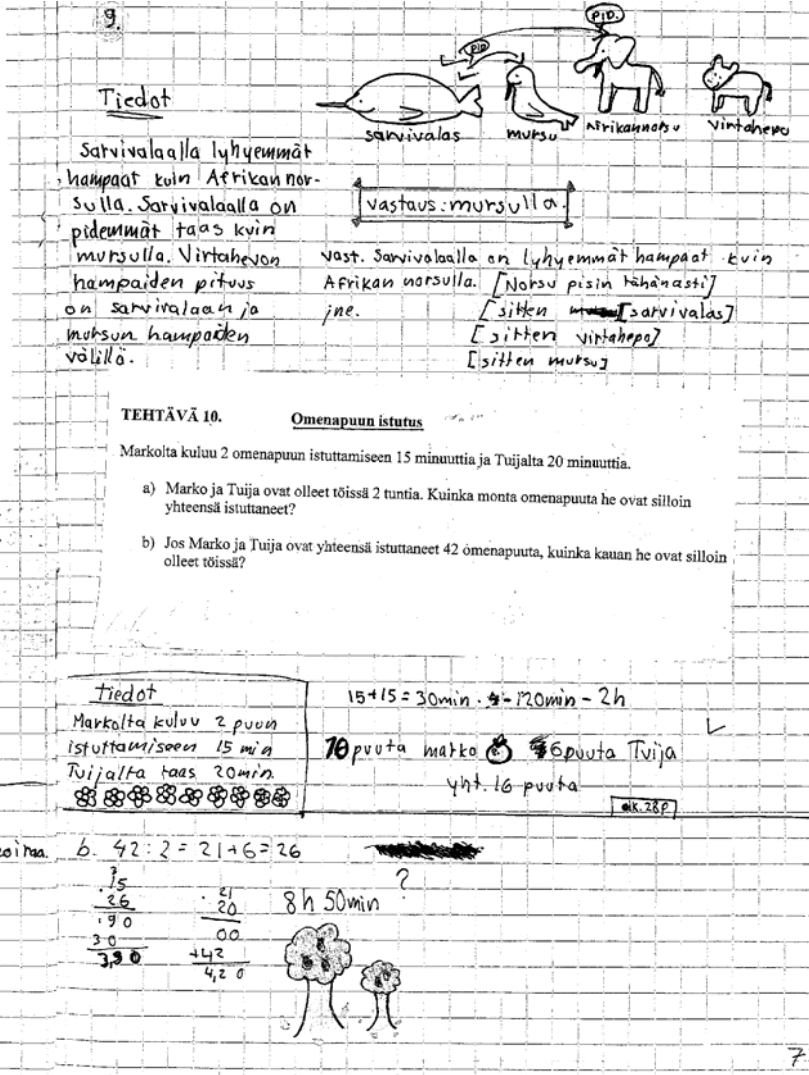 9.
PID.
PID
Tiedot
sarvivalas
mursu
Afrikannorsu
Virtahepo
Sarvivalaalla lyhyemmät
hampaat kuin Afrikan nor-
sulla. Sarvivalaalla on
pidemmät taas kuin
mursulla. Virtahevon
hampaiden pituus
on sarvivalaan ja
mursun hampaiden
välillä.
vastaus: mursulla.
vast. Sarvivalaalla on lyhyemmät hampaat kuin
Afrikan norsulla. [Norsu pisin tähänasti]
jne. [sitten [sarvivalas]
[sitten virtahepo]
[sitten mursu]
TEHTÄVÄ 10. Omenapuun istutus
Markolta kuluu 2 omenapuun istuttamiseen 15 minuuttia ja Tuijalta 20 minuuttia.
a) Marko ja Tuija ovat olleet töissä 2 tuntia. Kuinka monta omenapuuta he ovat silloin
yhteensä istuttaneet?
b) Jos Marko ja Tuija ovat yhteensä istuttaneet 42 omenapuuta, kuinka kauan he ovat silloin
olleet töissä?
tiedot
Markolta kuluu 2 puun
istuttamiseen 15 min
Tuijalta taas 20min.
15+15=30min · 4-120min-2h
10 puuta marko 6puuta Tuija
yht. 16 puuta
b. 42:2=21+6=26
?
15
26
90
30
3,90
21
20
00
+42
4,20
8h 50min
7